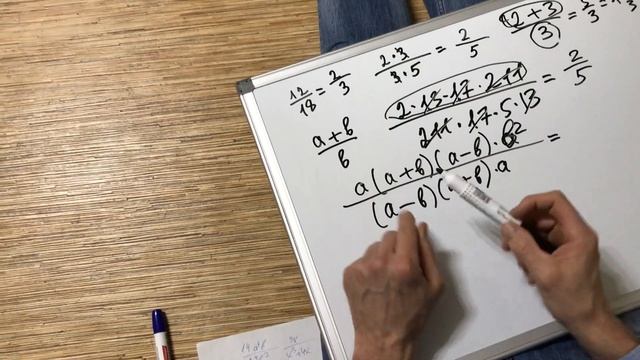 12/18 = 2/3
2·3/3·5 = 2/5
2+3/3 = 2/3
2·13·17·211/211·17·5·13 = 2/5
a+b/b
a(a+b)(a-b)·b²/(a-b)(a+b)·a =